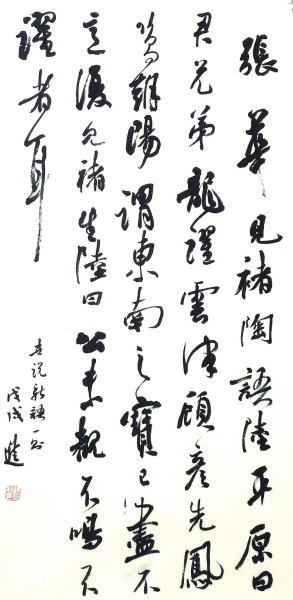 張華見褚陶語陸平原曰
君兄弟龍躍雲津顧彥先鳳
鳴朝陽謂東南之寶已盡不
意復見褚生陸曰公未覩不鳴不
躍者耳
世說新語一則
戊戌